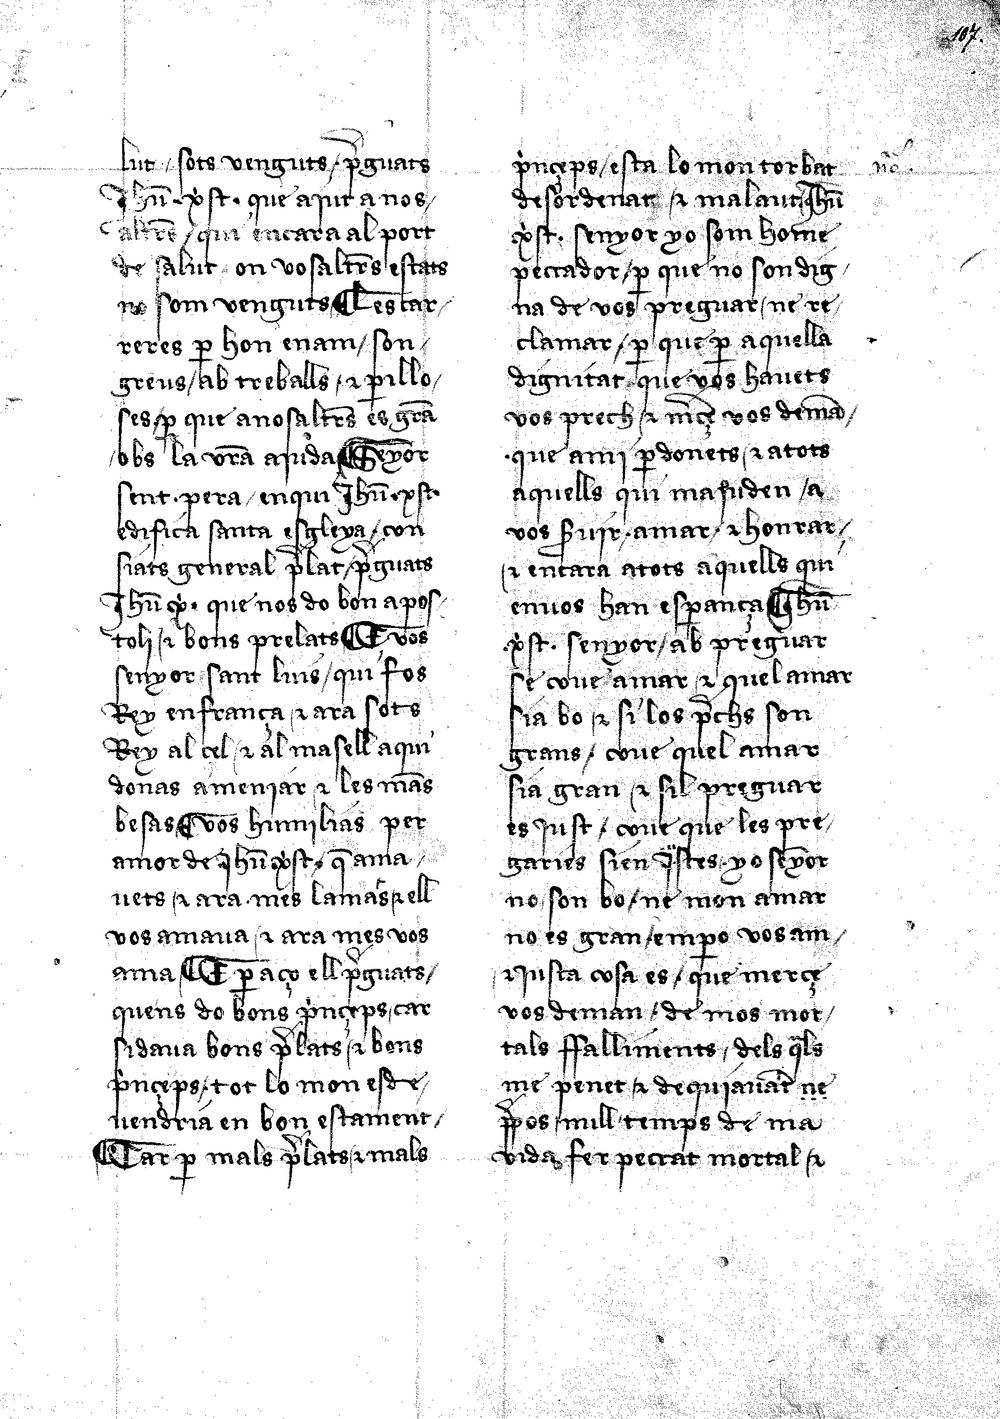 107.
lut / sots venguts / p̃guats
Jhũ. xp̃st. que ajut a nos/
altr̃s / qui encara al port
de salut on vosaltr̃s estats
no som venguts ⸿ Les car/
reres ꝑ hon enam / son /
greus / ab treballs / ⁊ ꝑillo/
ses / ꝑ que a nosaltr̃s es grã
/obs la vr̃a ajuda ⸿ Seyõr
sent. pera / en qui Jhũ. xp̃st.
edifica santa esgleya / con
siats general p̃lat / p̃guats
Jhũ xp̃. que nos do bon apos/
toli / ⁊ bons prelats ⸿ E vos
senyor sant luis / qui fos
Rey en frança / ⁊ ara sots
Rey al cel / ⁊ al masell aqui
donas a meniar ⁊ les mãs
besas ⸿ vos humilias per
amor de Jhũ xp̃st. q̃ ama /
uets / ⁊ ara mes lamas / ⁊ ell
vos amaua / ⁊ ara mes vos
ama ⸿ E ꝑ aço ell p̃guats /
quens do bons p̃nçeps / car
si daua bons p̃lats / ⁊ bons
p̃nçeps / tot lo mon esde /
uendria en bon estament /
⸿ Car ꝑ mals p̃lats / ⁊ mals
p̃nçeps / esta lo mon torbat
desordenat / ⁊ malaut / Jhũ
xp̃st. senyor yo som home
peccador / ꝑ que no son dig /
na de vos preguar / ne re /
clamar / ꝑ que ꝑ aquella
dignitat que vos hauets
vos prech / ⁊ m̃çe vos demã /
que ami ꝑdonets / ⁊ atots
aquells qui majuden / a
vos s̃uir / amar / ⁊ honrar /
/⁊ encara atots aquells qui
en uos han esperança ⸿ Jhũ
xp̃st. senyor / ab preguar
se coue amar / ⁊ quel amar
sia bo / ⁊ si los p̃chs son
grans / coue quel amar
sia gran / ⁊ sil preguar
es Just / coue que les pre /
garies sien Justes. yo seyõr
no son bo / ne mon amar
no es gran / empo vos am /
⁊ Justa cosa es / que merçe
vos deman / de mos mor /
tals ffalliments / dels q̃ls
me penet / ⁊ de qui auãt ne
ꝓpos null temps de ma
vida fer peccat mortal / ⁊